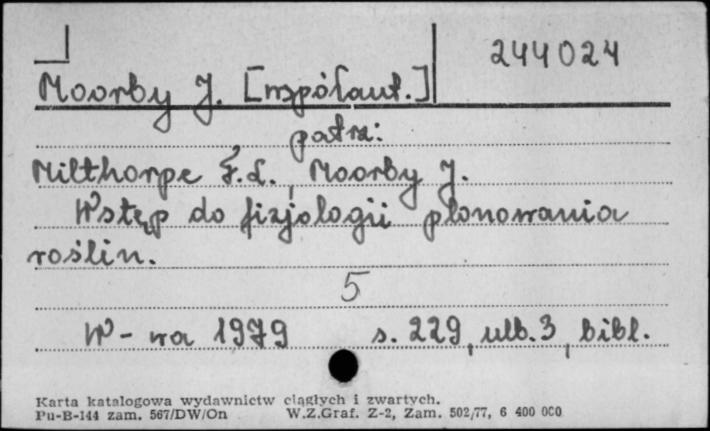 244024
Moorby J. [współaut.]
patrz:
Milthorpe F.L., Moorby J.
Wstęp do fizjologii plonowania
roślin.
5
W-wa 1979 s. 229, ulb. 3, bibl.
Karta katalogowa wydawnictw ciągłych i zwartych.
Pu-B-144 zam. 567/DW/On W.Z.Graf. Z-2, Zam. 502/77, 6 400 000